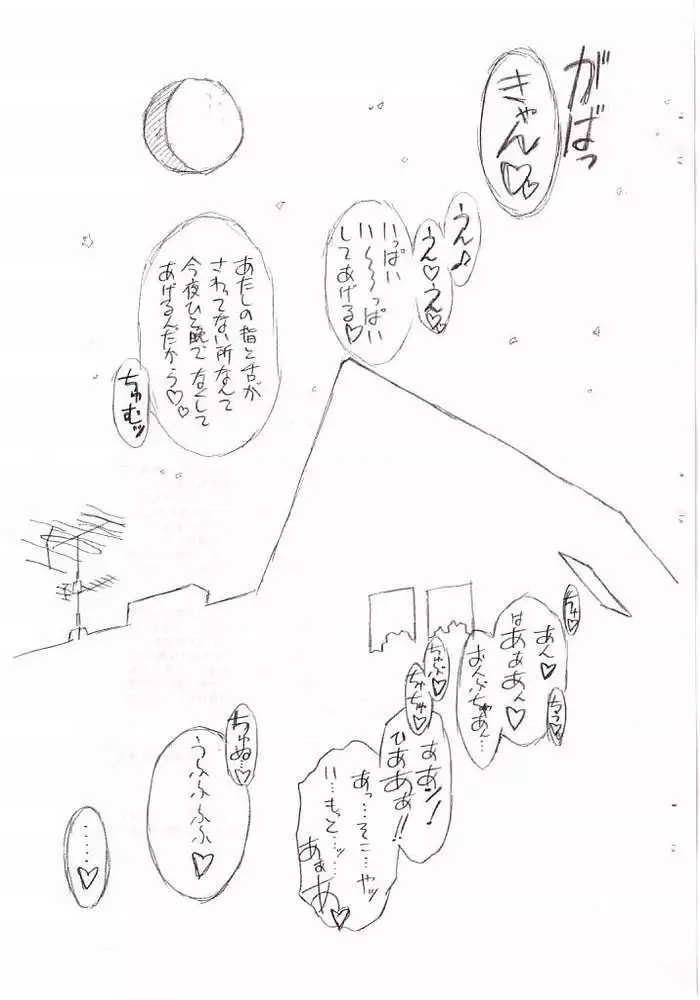 がばっ
きゃん♡♡
うん♪
うん♡うん♡
いっぱい
い〜〜〜っぱい
してあげる♡
あたしの指と舌が
さわってない所なんて
今夜ひと晩で なくして
あげるんだから♡♡
ちゅむッ
ちゅ♡
あん♡
はあぁあん♡
ちう♡
おんぷちゃあん…
ちゅぷ♡
ちゅちゅ♡
ああン!
ひああぁ!!
あっ…そこ…やッ
い…もっと…ッ…
あぁあ♡
ちゅぬ…♡
うふふふふ♡
……♡